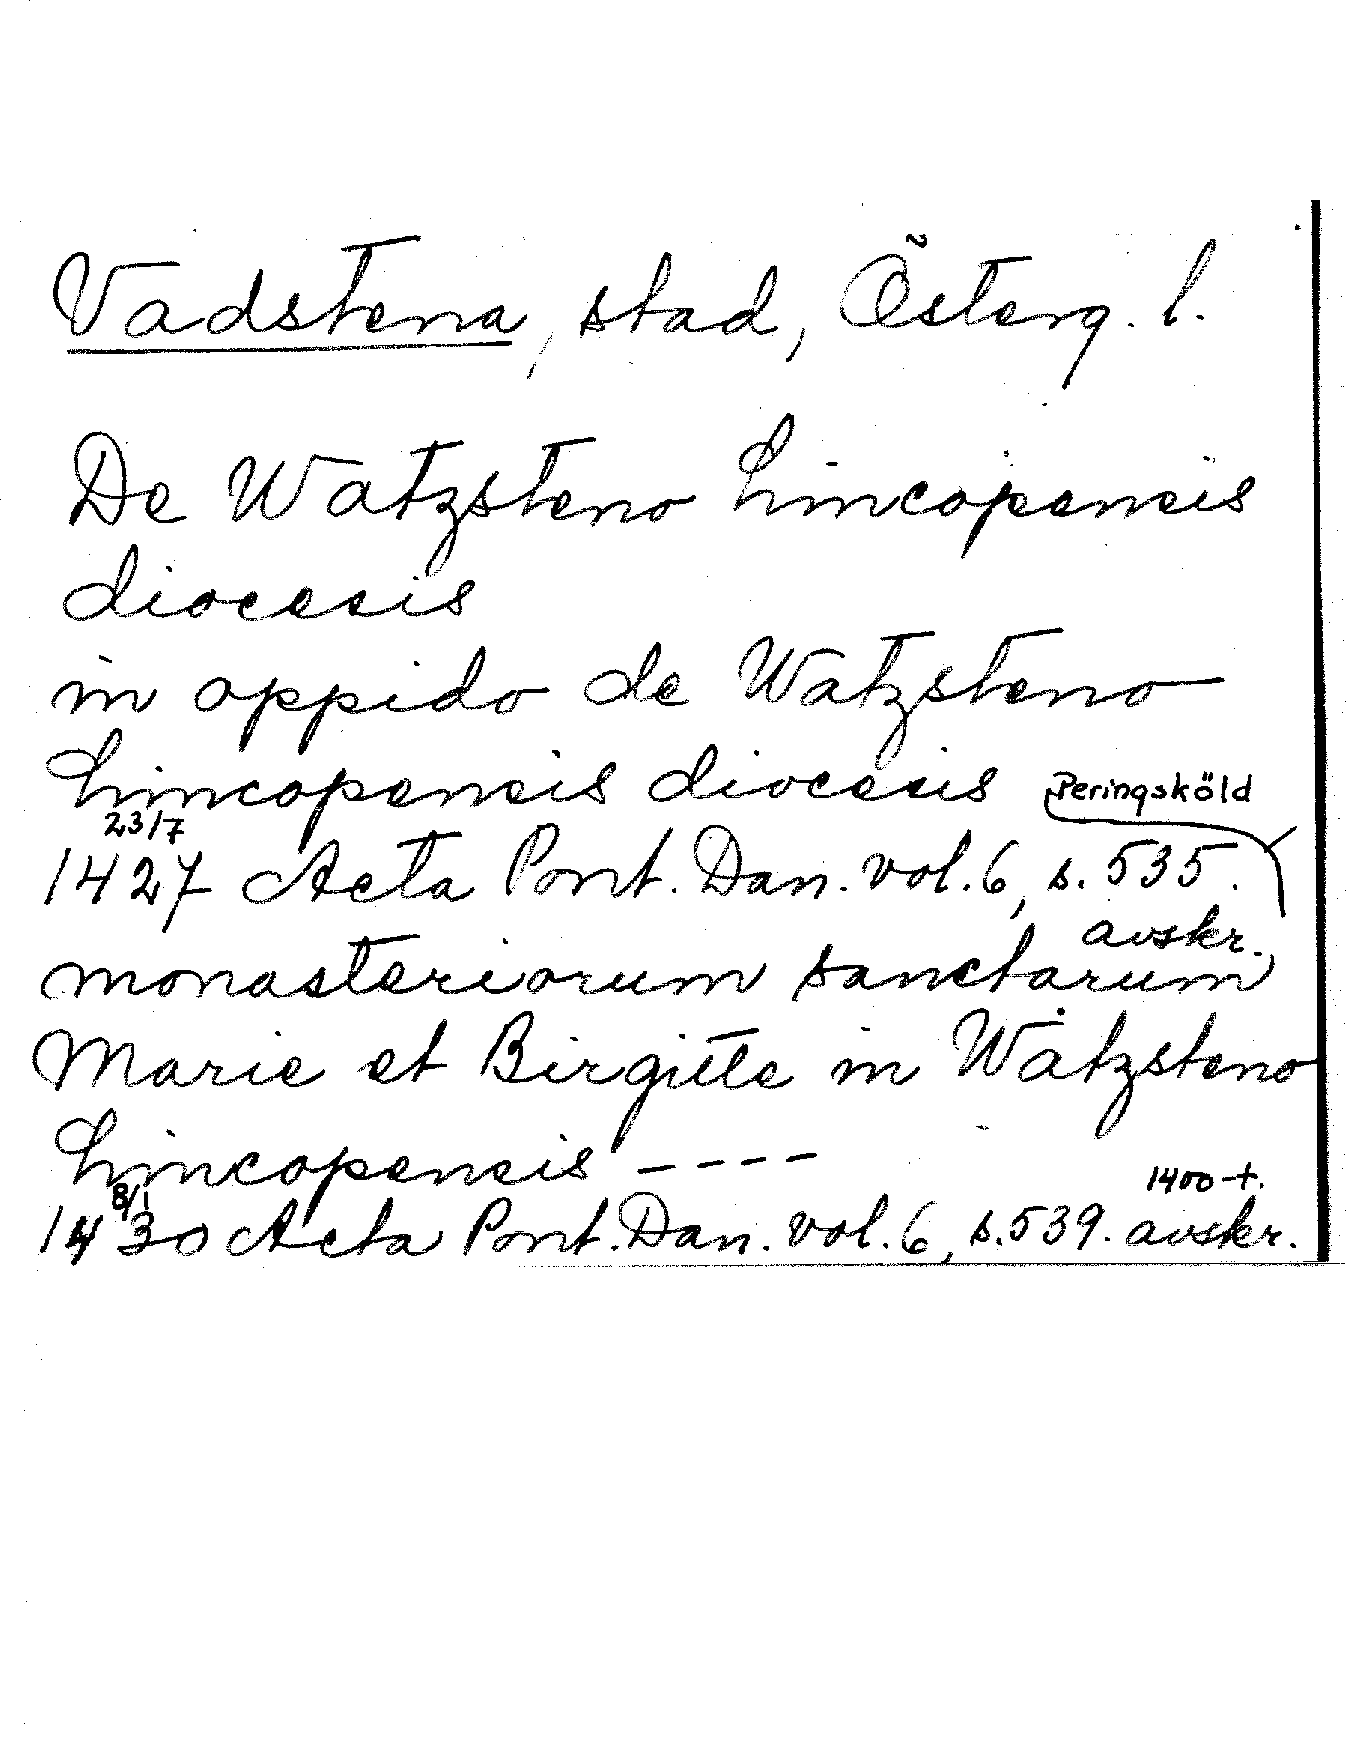 Vadstena, stad, Österg. l.
De Watzsteno Lincopensis
diocesis
in oppido de Watzsteno
Lincopensis diocesis Peringsköld
23/7
1427 Acta Pont. Dan. vol. 6, s. 535.
avskr.
monasteriorum sanctarum
Marie et Birgitte in Watzsteno
Lincopensis ----
8/1 1400-t.
1430 Acta Pont. Dan. vol. 6, s. 539. avskr.